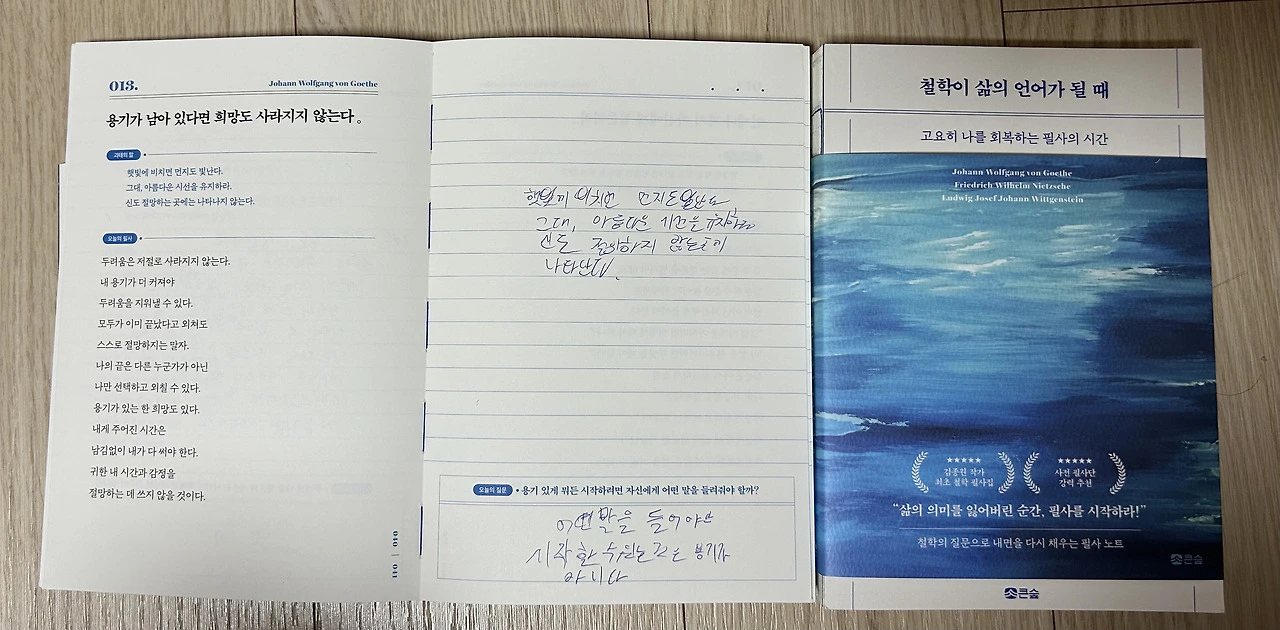 013.
Johann Wolfgang von Goethe
용기가 남아 있다면 희망도 사라지지 않는다.
괴테의 말
햇빛에 비치면 먼지도 빛난다.
그대, 아름다운 시선을 유지하라.
신도 절망하는 곳에는 나타나지 않는다.
오늘의 필사
두려움은 저절로 사라지지 않는다.
내 용기가 더 커져야
두려움을 지워낼 수 있다.
모두가 이미 끝났다고 외쳐도
스스로 절망하지는 말자.
나의 끝은 다른 누군가가 아닌
나만 선택하고 외칠 수 있다.
용기가 있는 한 희망도 있다.
내게 주어진 시간은
남김없이 내가 다 써야 한다.
귀한 내 시간과 감정을
절망하는 데 쓰지 않을 것이다.
040 | 041
비치면 먼지도
그대, 아름다운 시선을
신은 않는
나타난다.
오늘의 질문
용기 있게 뭐든 시작하려면 자신에게 어떤 말을 들려줘야 할까?
어떤 말을 들어야만
시작할 수 있는 것은 용기가
아니다
철학이 삶의 언어가 될 때
고요히 나를 회복하는 필사의 시간
Johann Wolfgang von Goethe
Friedrich Wilhelm Nietzsche
Ludwig Josef Johann Wittgenstein
★★★★★
김종원 작가
최초 철학 필사집
★★★★★
사전 필사단
강력 추천
“삶의 의미를 잃어버린 순간, 필사를 시작하라!”
철학의 질문으로 내면을 다시 채우는 필사 노트
큰숲
큰숲